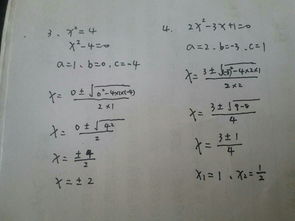 3、x²=4
x²-4=0
a=1、b=0、c=-4
x= (0±√(0²-4×1×(-4)))/(2×1)
x= (0±√4²)/2
x= ±4/2
x=±2
4. 2x²-3x+1=0
a=2、b=-3、c=1
x= (3±√((-3)²-4×2×1))/(2×2)
x= (3±√(9-8))/4
x= (3±1)/4
x₁=1、x₂=1/2